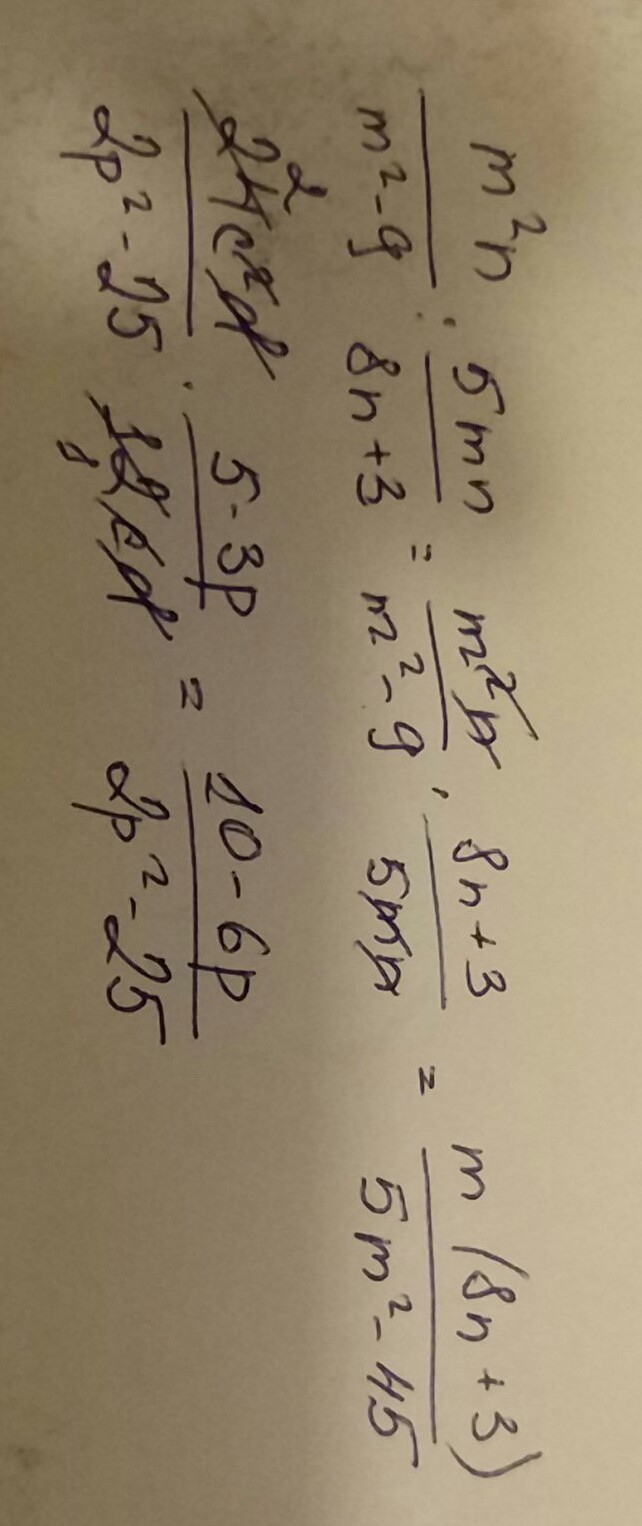 m²n/(m²-9) : 5mn/(8n+3) = m²n/(m²-9) · (8n+3)/(5mn) = m(8n+3)/(5m²-45)
24 2 c²d/(2p²-25) · (5-3p)/(12 1 cd) = (10-6p)/(2p²-25)